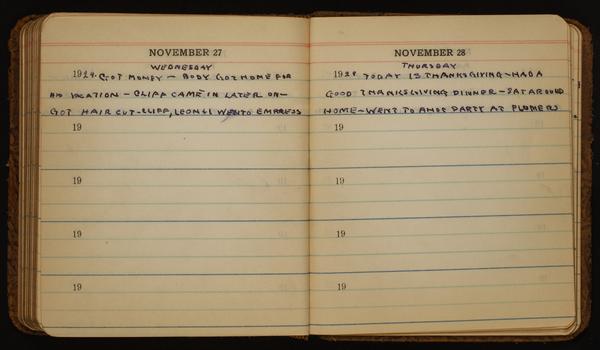 NOVEMBER 27
WEDNESDAY
1929. GOT MONEY – BUDY GOT HOME FOR
HIS VACATION – CLIFF CAME IN LATER ON –
GOT HAIR CUT – CLIFF, LEON & I WENT TO EMPRESS
19
19
19
19
NOVEMBER 28
THURSDAY
1929 TODAY IS THANKSGIVING – HAD A
GOOD THANKSGIVING DINNER – SAT AROUND
HOME – WENT TO PARTY AT
19
19
19
19